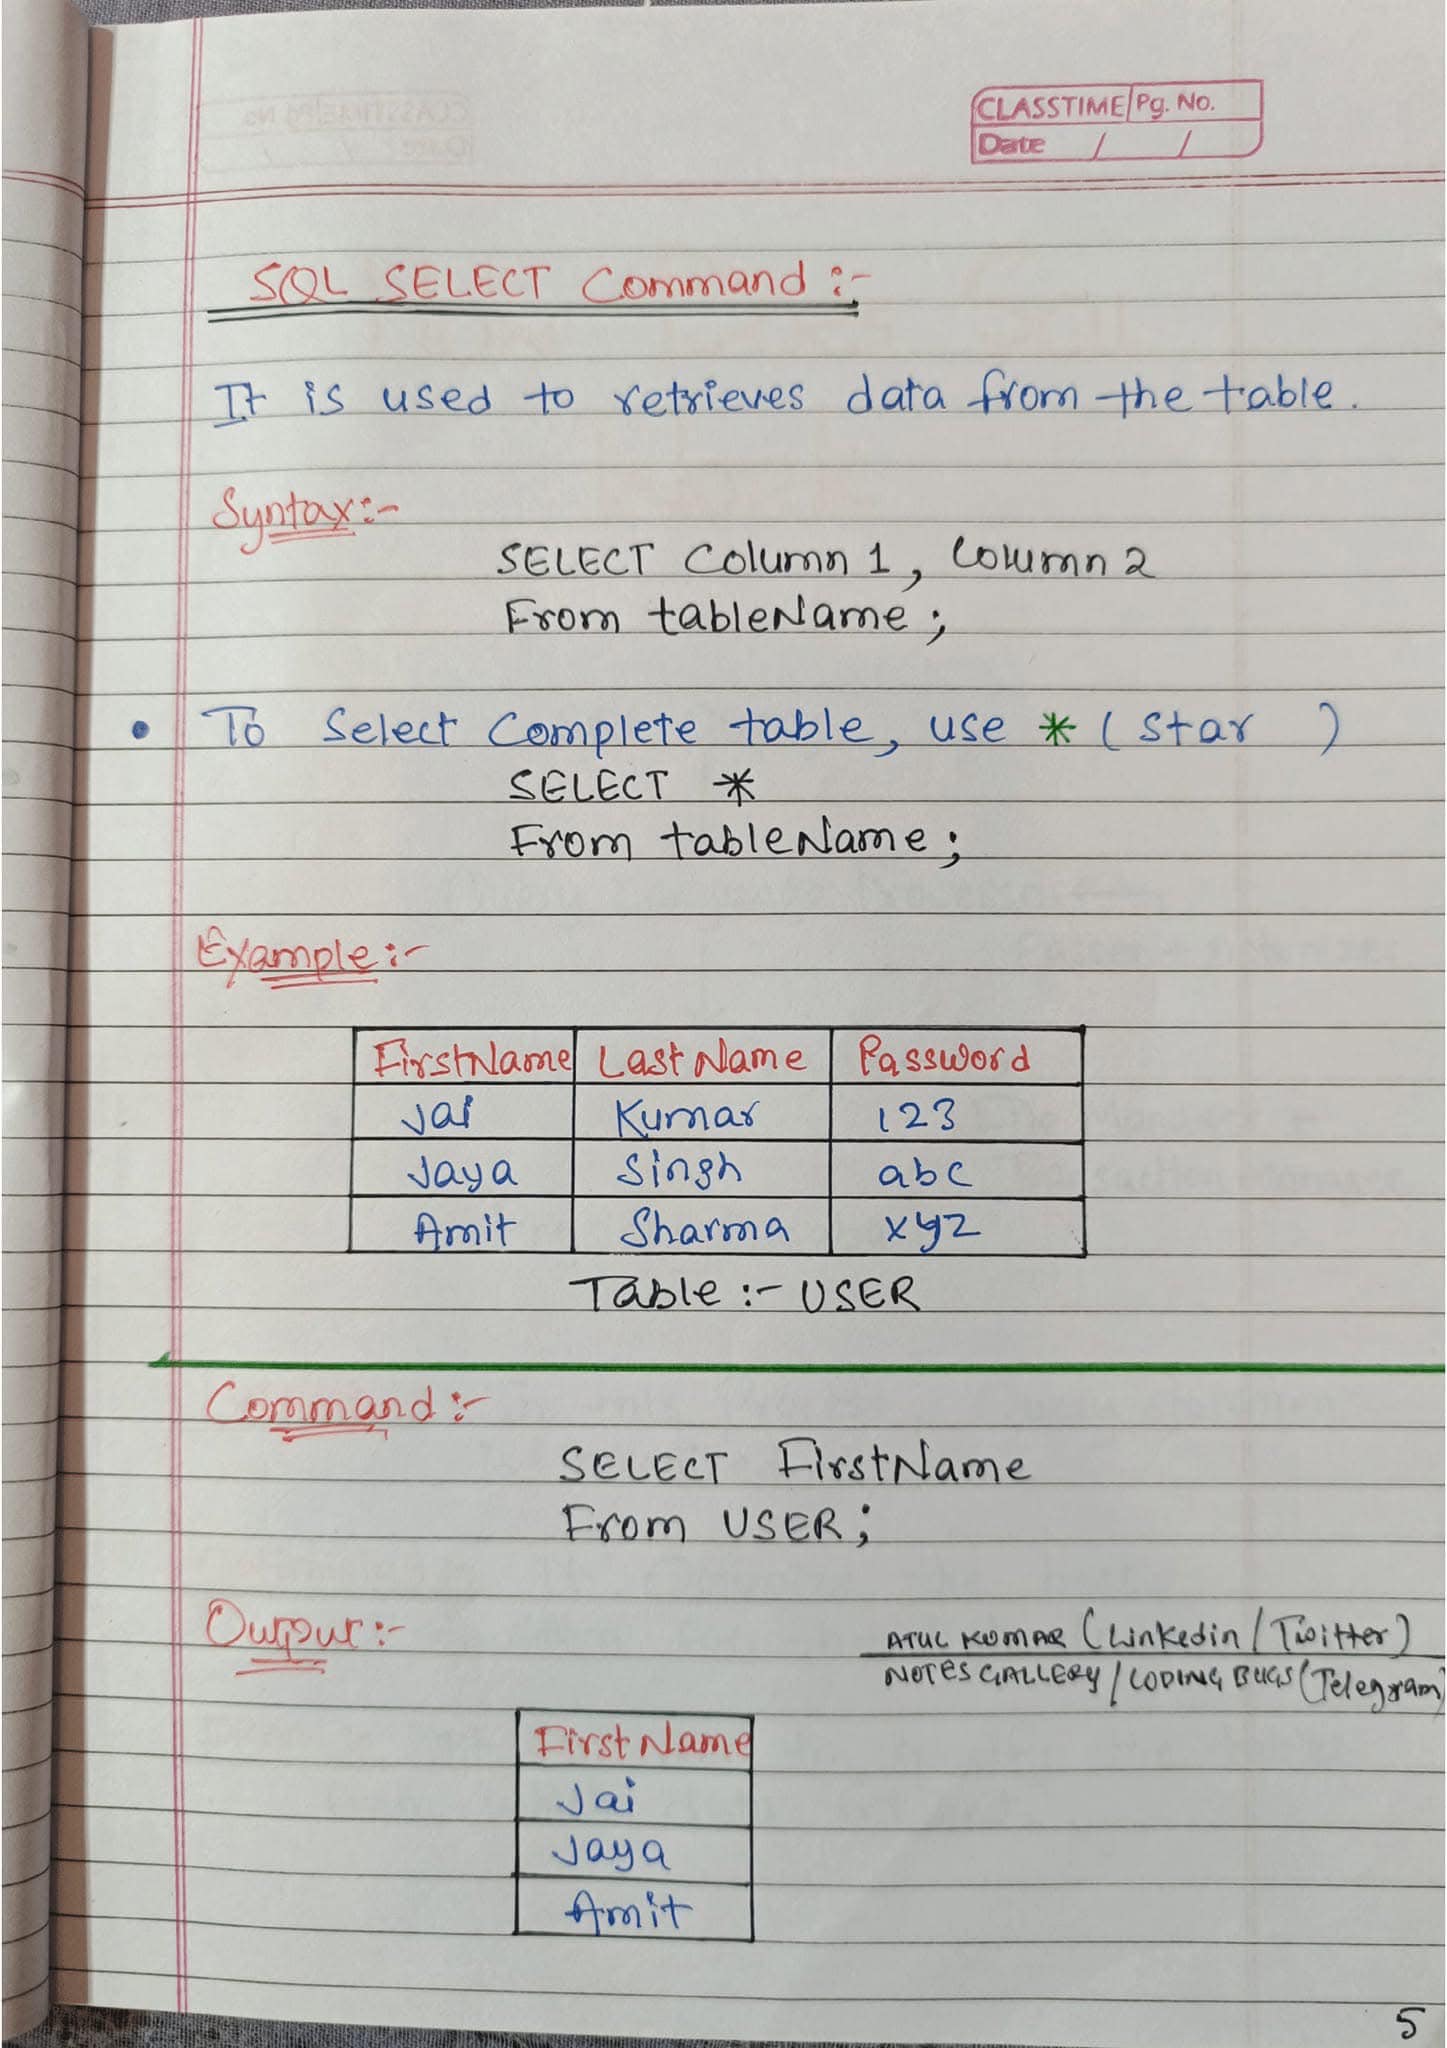 CLASSTIME Pg. No.
Date / /
SQL SELECT Command :-
It is used to retrieves data from the table.
Syntax:-
SELECT Column 1, Column 2
From tableName;
• To Select Complete table, use * (star )
SELECT *
From tableName;
Example:-
FirstName Last Name Password
Jai Kumar 123
Jaya Singh abc
Amit Sharma xyz
Table :- USER
Command :-
SELECT FirstName
From USER;
Output :-
ATUL KUMAR (Linkedin / Twitter)
NOTES GALLERY / CODING BUGS (Telegram)
First Name
Jai
Jaya
Amit
5